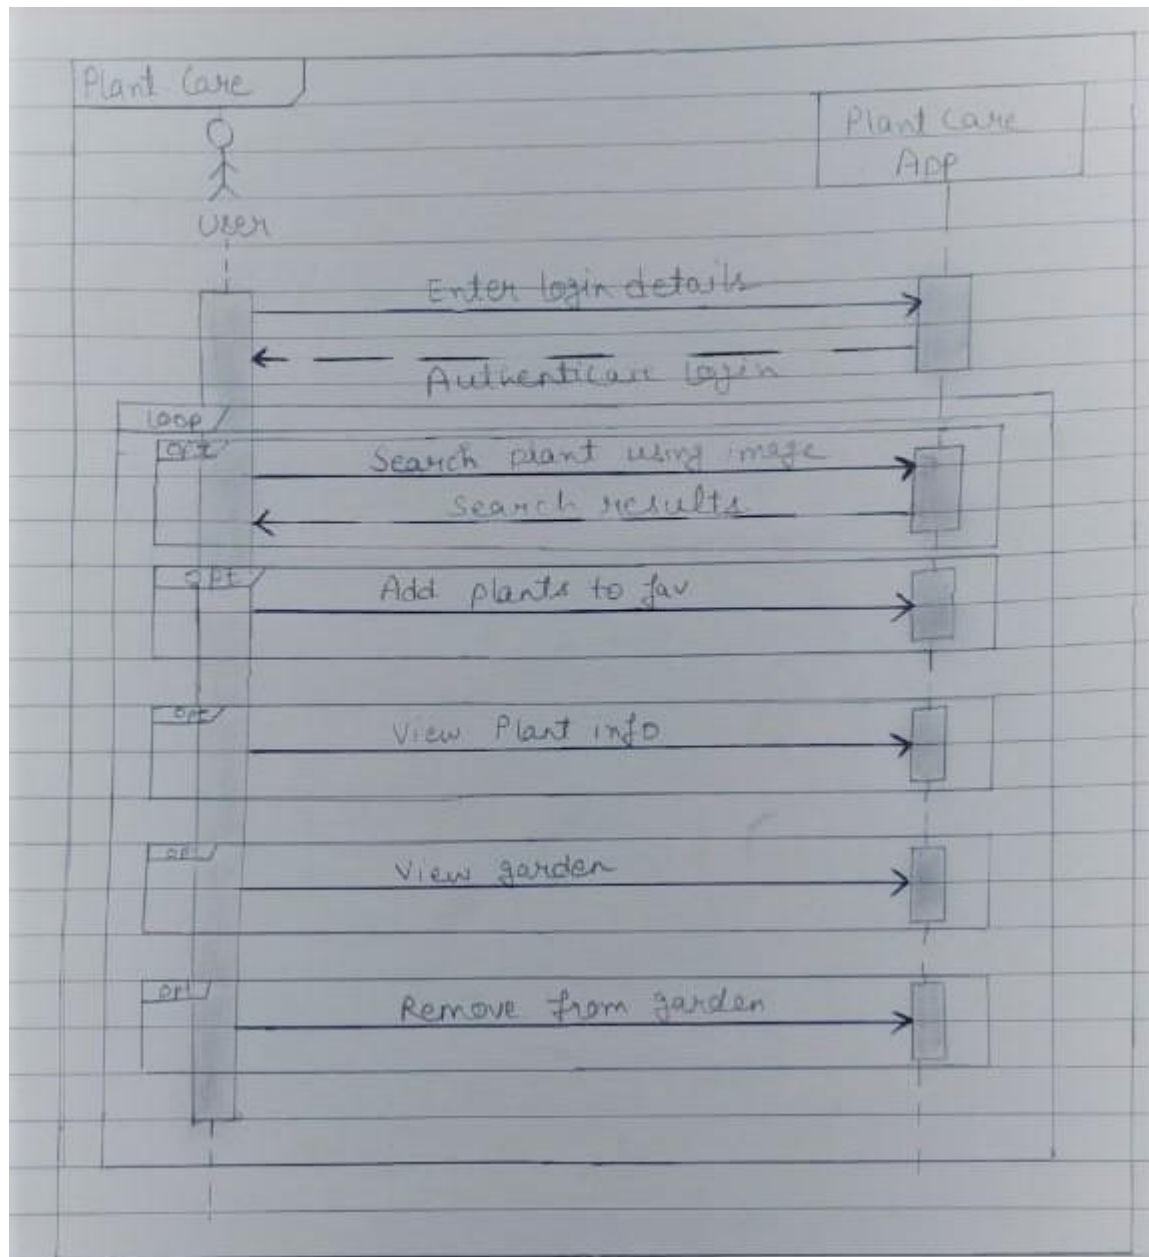 Plant Care
Plant Care
App
User
Enter login details
Authenticate login
loop
opt
Search plant using image
Search results
opt
Add plants to fav
opt
View Plant info
opt
View garden
opt
Remove from garden